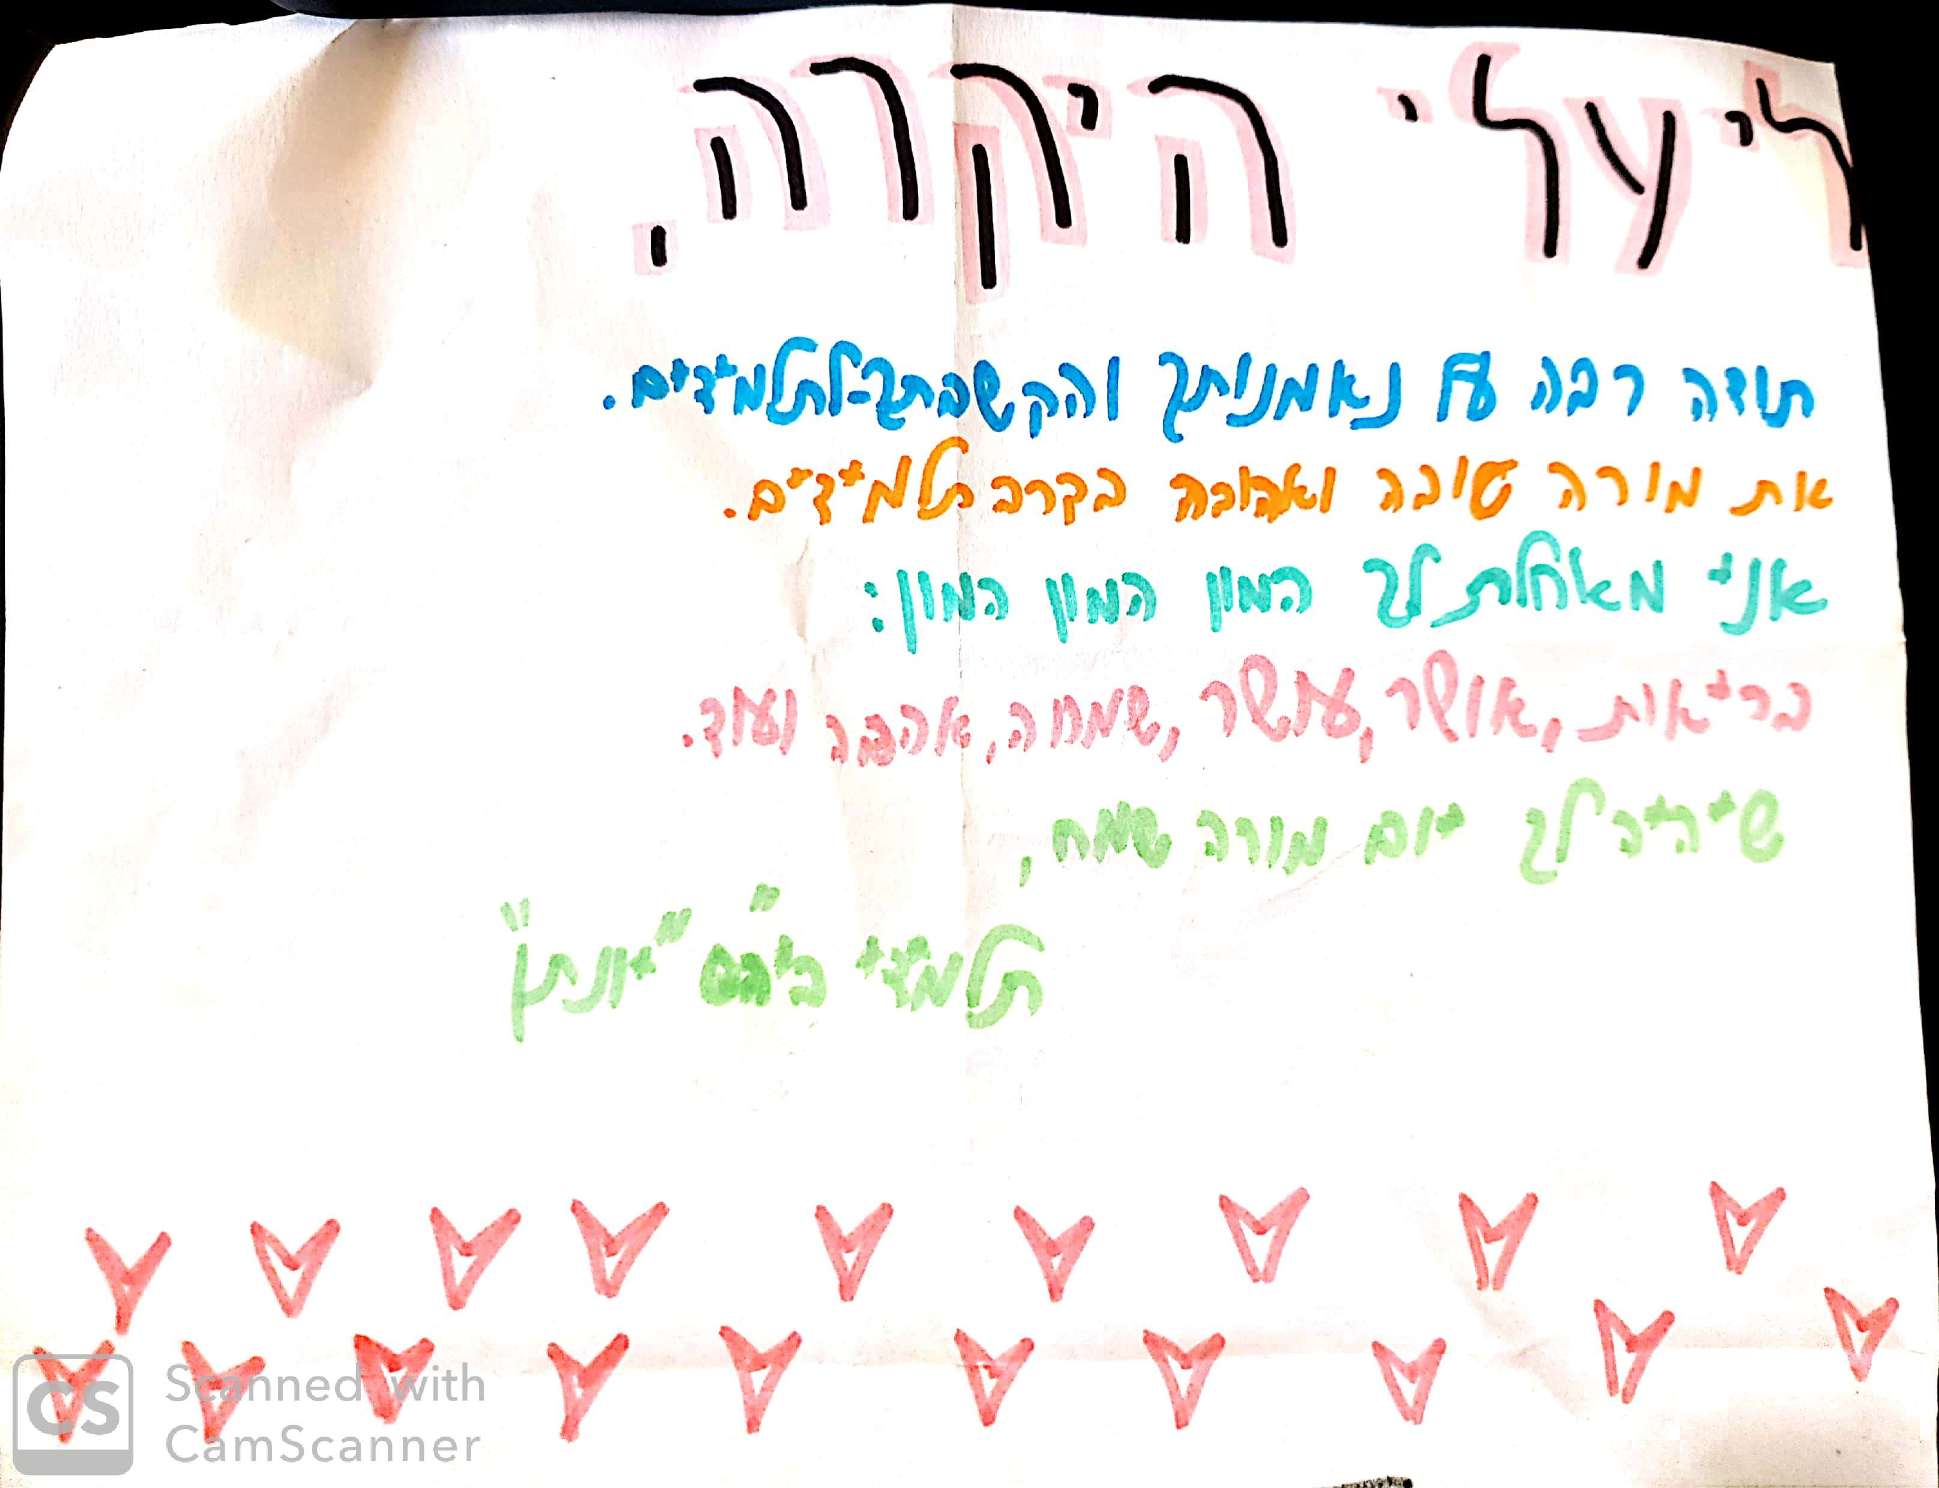 ליעלי היקרה.
תודה רבה על נאמנותך והקשבתך לתלמידים.
את מורה טובה ואהובה בקרב תלמידים.
אני מאחלת לך המון המון המון:
בריאות, אושר, עושר, שמחה, אהבה ועוד.
שיהיה לך יום מורה שמח,
תלמידי ביה"ס "יונתן"
CS Scanned with
CamScanner